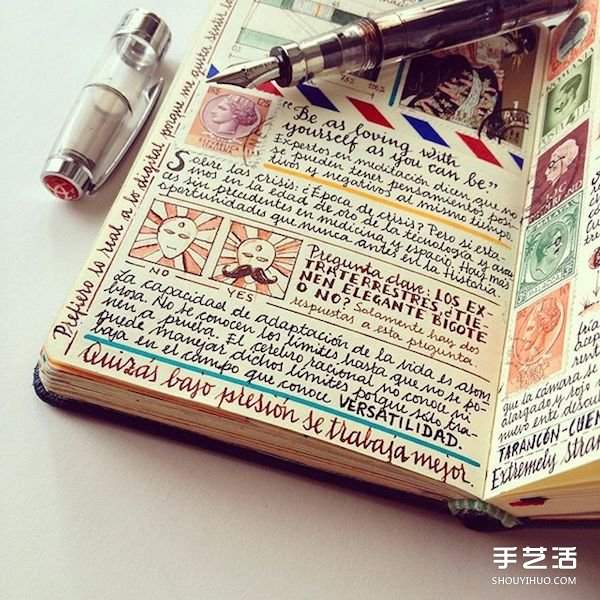 Prefiero lo real a lo digital porque me gusta sentir la
"Be as loving with
yourself as you can be."
Expertos en meditación dicen que no
se pueden tener pensamientos posi-
tivos y negativos al mismo tiempo.
Sobre las crisis: ¿Época de crisis? Pero si esta-
mos en la edad de oro de la tecnología. Hay avan
ces sin precedentes en medicina y espacio. Hay más
oportunidades que nunca antes en la Historia.
NO
YES
Pregunta clave: ¿LOS EX-
TRATERRESTRES TIE-
NEN ELEGANTE BIGOTE
O NO? Solamente hay dos
respuestas a esta pregunta.
La capacidad de adaptación de la vida es asom
brosa. No se conocen los límites hasta que no se po-
nen a prueba. El cerebro racional no conoce ni
puede manejar dichos límites porque sólo tra-
baja en el campo que conoce VERSATILIDAD.
Quizás bajo presión se trabaja mejor.
que la cámara se
alargado y rojo
nuevo ente descu
TARANCÓN-CUEN
Extremely Stran
手艺活
SHOUYIHUO.COM